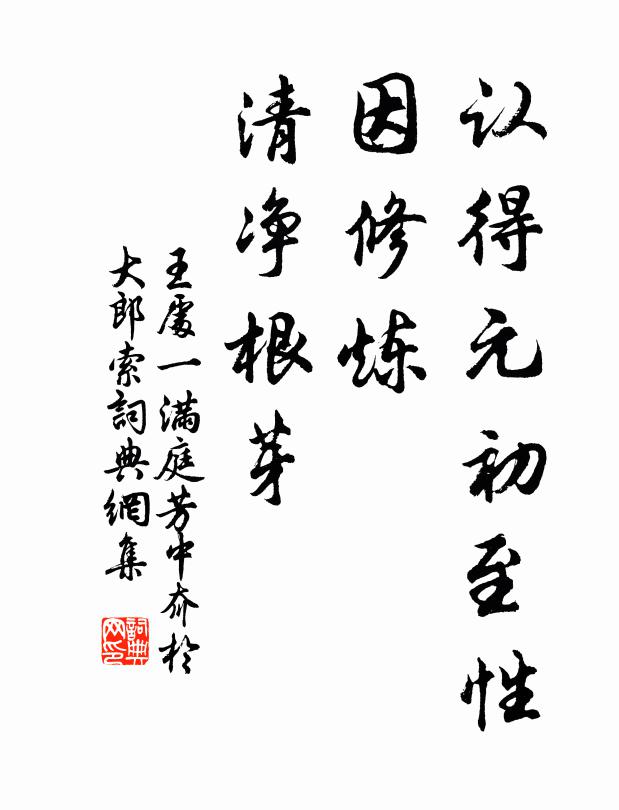 认得元初至性
因修炼
清净根芽
王處一满庭芳中夼於
大郎索詞典網集
詞典网印